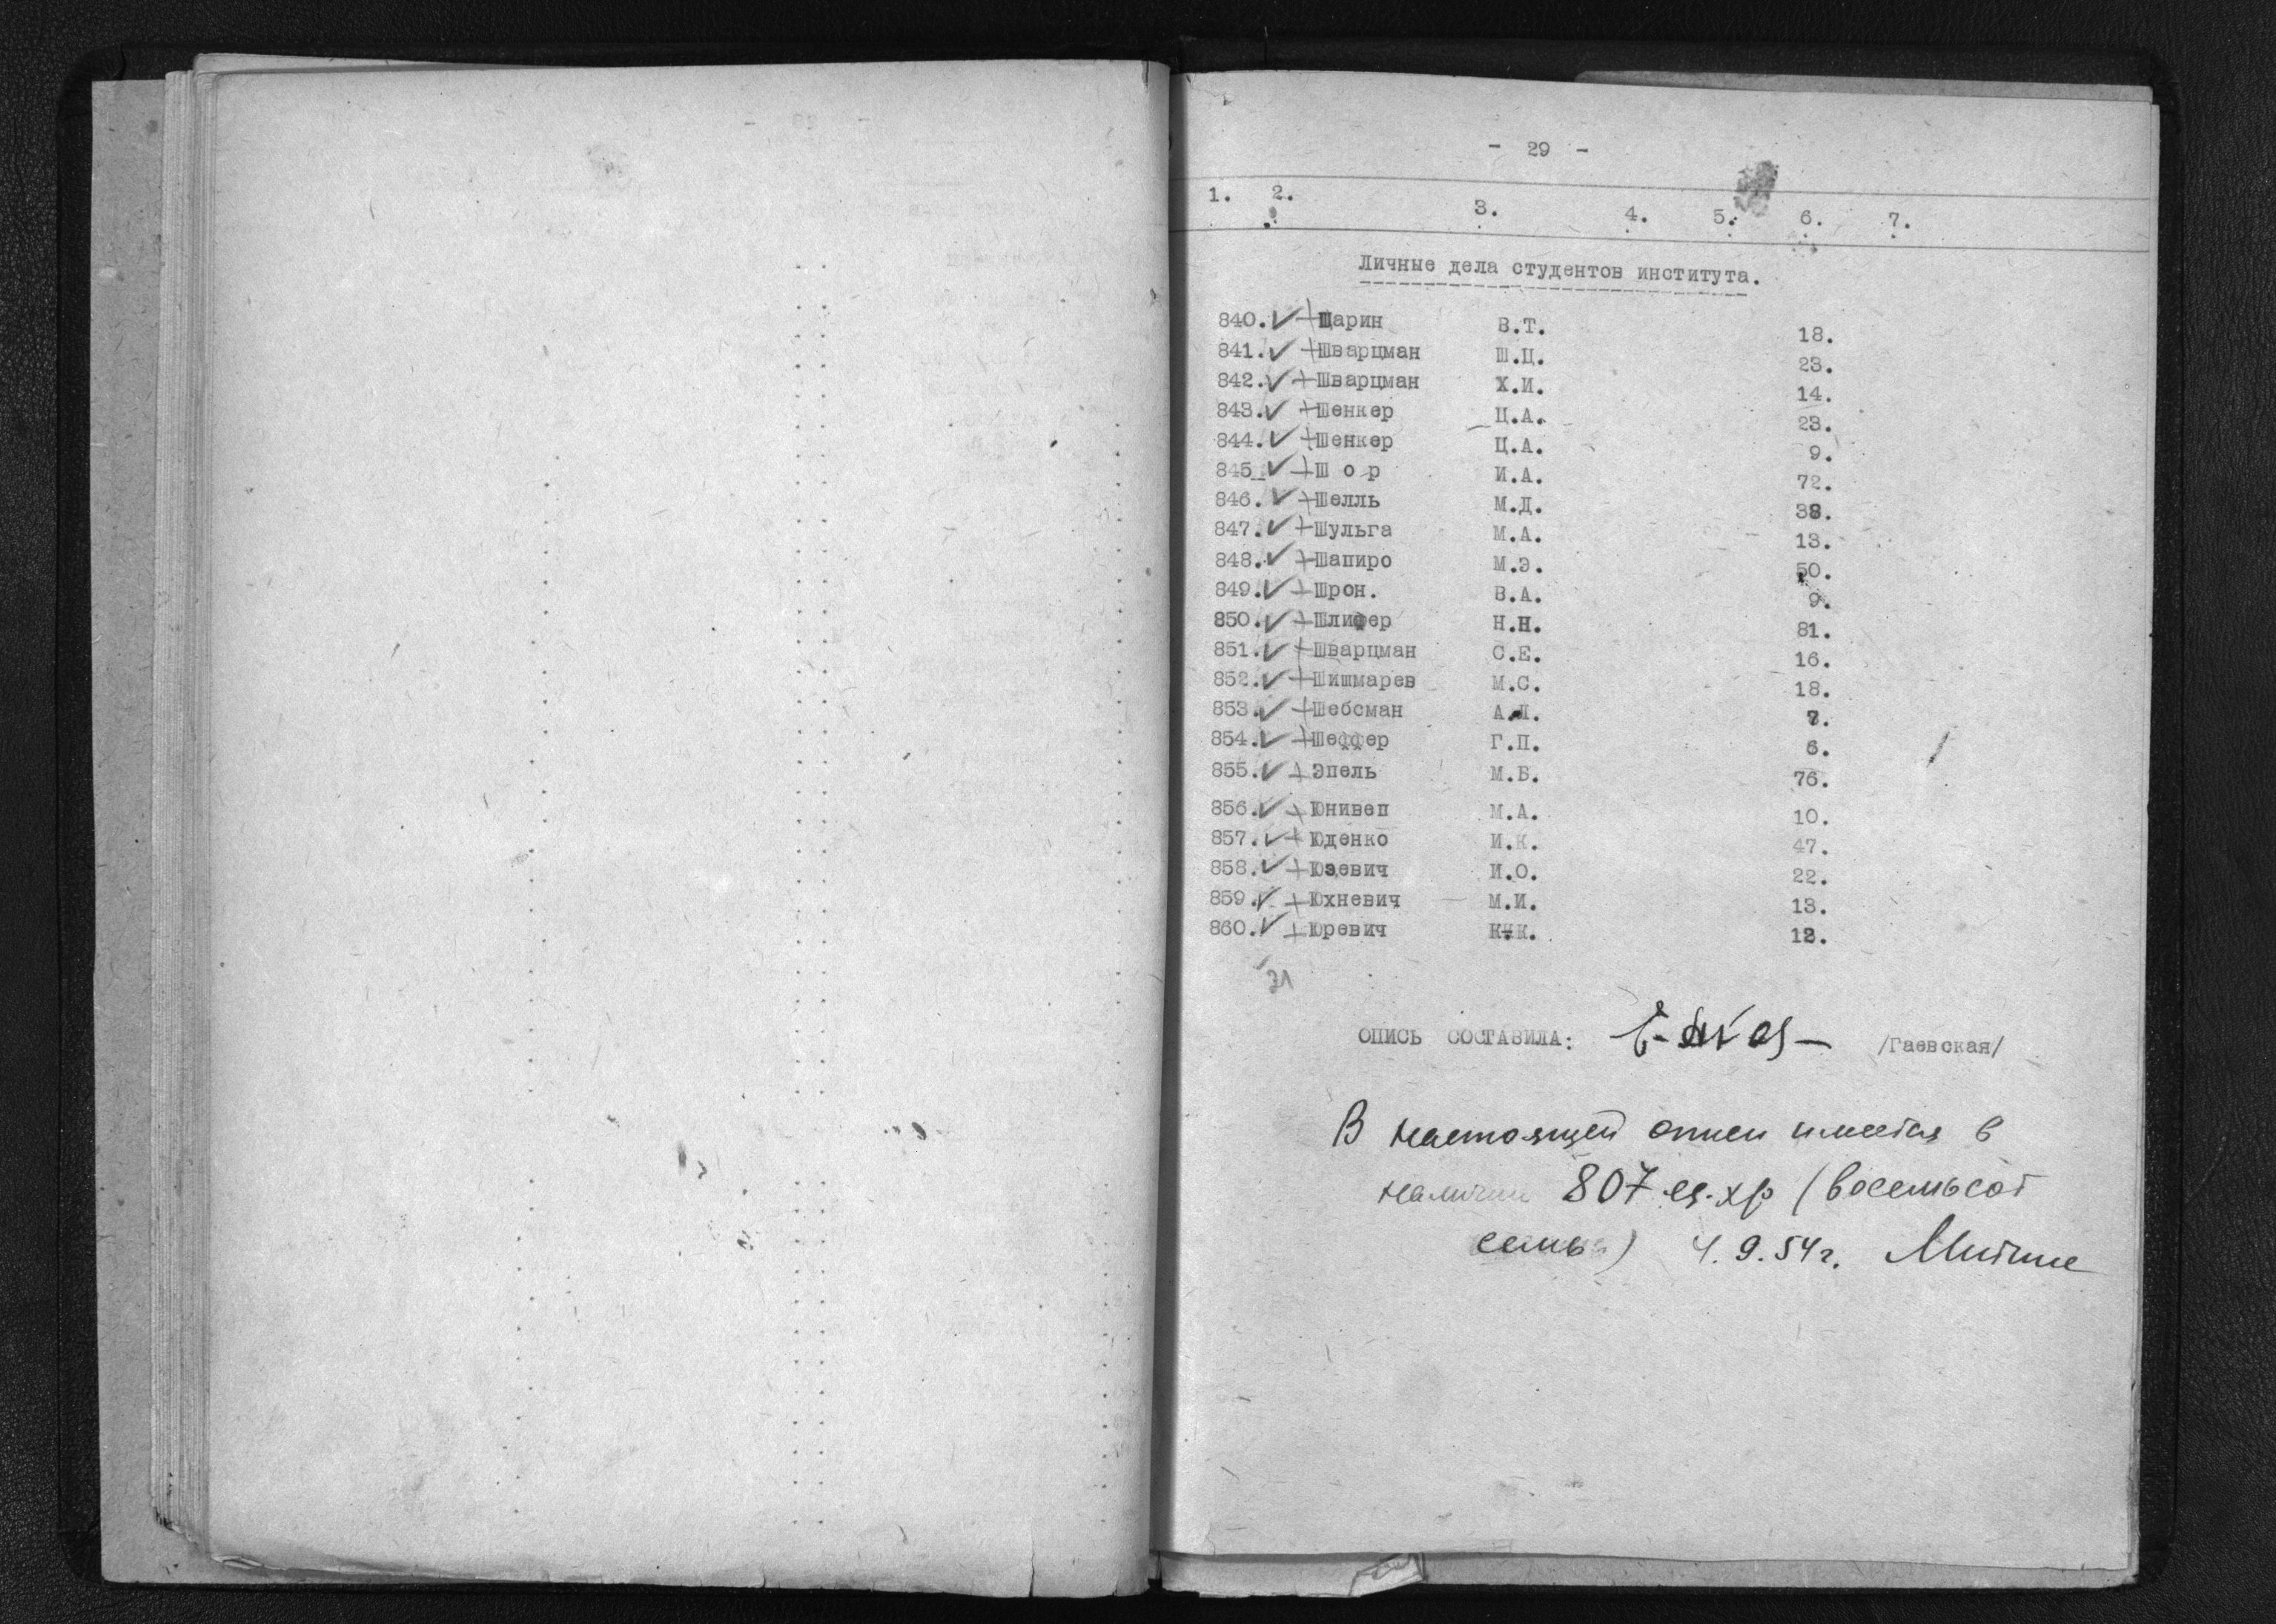 - 29 -
1. 2. 3. 4. 5. 6. 7.
Личные дела студентов института.
840. Щарин В.Т. 18.
841. Шварцман Ш.Ц. 23.
842. Шварцман Х.И. 14.
843. Шенкер Ц.А. 23.
844. Шенкер Ц.А. 9.
845 Ш о р И.А. 72.
846. Шелль М.Д. 38.
847. Шульга М.А. 13.
848. Шапиро М.Э. 50.
849. Шрон. В.А. 9.
850. Шлифер Н.Н. 81.
851. Шварцман С.Е. 16.
852. Шишмарев М.С. 18.
853. Шебсман 
854. Шеффер Г.П. 6.
855. Эпель М.Б. 76.
856. Юнивеп М.А. 10.
857. Юденко И.К. 47.
858. Юзевич И.О. 22.
859. Юхневич М.И. 13.
860. Юревич
21
ОПИСЬ СОСТАВИЛА: /Гаевская/
В настоящей описи имеется в
наличии 807 ед.хр (восемьсот
семь) 4.9.54г.